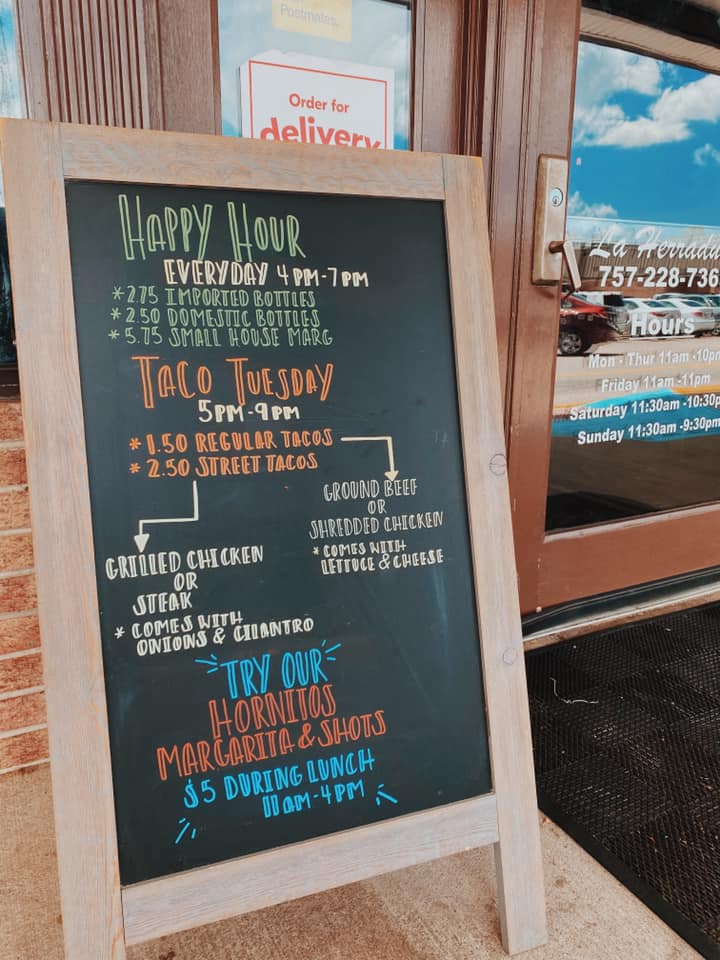 Postmates
Order for
delivery
HAPPY HOUR
EVERYDAY 4PM-7PM
*2.75 IMPORTED BOTTLES
*2.50 DOMESTIC BOTTLES
*5.75 SMALL HOUSE MARG
TACO TUESDAY
5PM-9PM
*1.50 REGULAR TACOS
*2.50 STREET TACOS
GROUND BEEF
OR
SHREDDED CHICKEN
*COMES WITH
LETTUCE & CHEESE
GRILLED CHICKEN
OR
STEAK
*COMES WITH
ONIONS & CILANTRO
TRY OUR
HORNITOS
MARGARITA & SHOTS
$5 DURING LUNCH
11AM-4PM
La Herradu
757-228-736
Hours
Mon - Thur 11am -10p
Friday 11am -11pm
Saturday 11:30am -10:30p
Sunday 11:30am -9:30pm